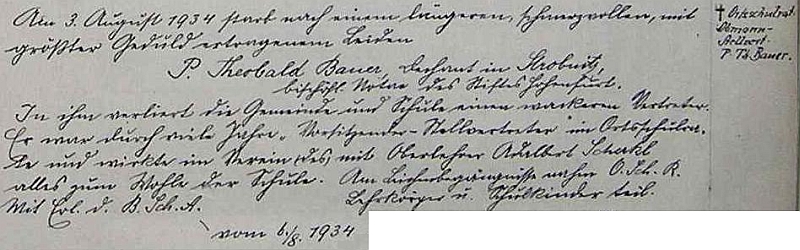 Am 3. August 1934 starb nach einem längeren, schmerzvollen, mit
größter Geduld ertragenem Leiden
P. Theobald Bauer, Dechant in Strobnitz,
bischöfl. Notar des Stiftes Hohenfurt.
In ihm verliert die Gemeinde und Schule einen wackeren Vertreter.
Er war durch viele Jahre „Vorsitzender-Stellvertreter" im Ortsschulra-
te und wirkte im Verein mit Oberlehrer Adalbert
alles zum Wohle der Schule. Am Leichenbegängnisse nahm O. Sch. R.
Lehrkörper u. Schulkinder teil.
Mit Erl. d. B. Sch. A.
vom 6./8. 1934
† Ortsschulrat-
Obmann-
Stellvert.
P. Th. Bauer.